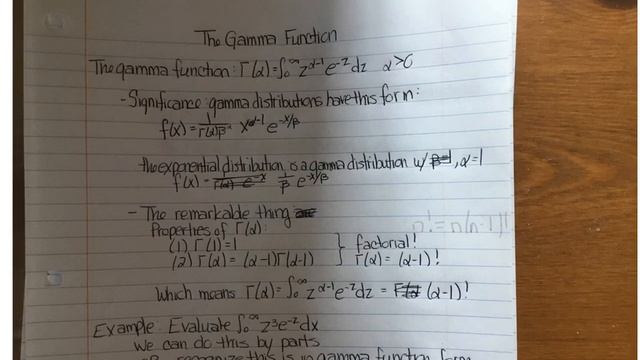 The Gamma Function
The gamma function: Γ(α)=∫₀^∞ z^(α-1) e^(-z) dz α>0
- Significance: gamma distributions have this form:
f(x) = 1/(Γ(α)β^α) x^(α-1) e^(-x/β)
the exponential distribution is a gamma distribution w/ β=1, α=1
f(x) = 1/β e^(-x/β)
- The remarkable thing
Properties of Γ(α):
(1) Γ(1)=1
(2) Γ(α) = (α-1)Γ(α-1)
} factorial!
Γ(α) = (α-1)!
n! = n(n-1)!
Which means Γ(α)=∫₀^∞ z^(α-1) e^(-z) dz = (α-1)!
Example: Evaluate ∫₀^∞ z³e^(-z) dx
We can do this by parts
OR recognize this is in gamma function form